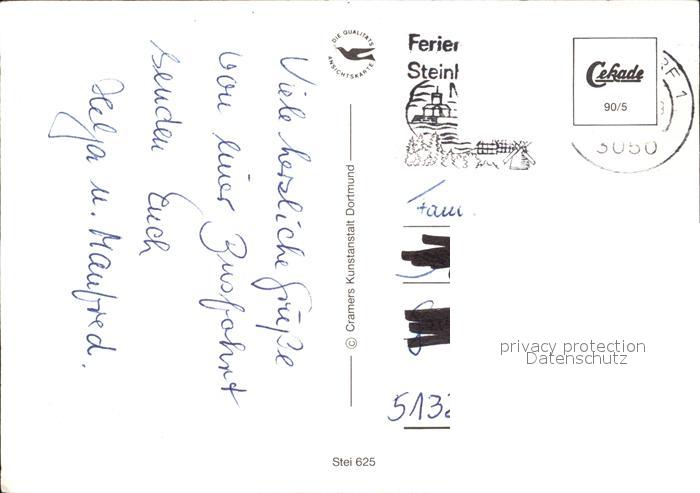 Viele herzliche Grüße
von einer Busfahrt
senden Euch
Helga u. Manfred.
DIE QUALITÄTS
ANSICHTSKARTE
© Cramers Kunstanstalt Dortmund
Stei 625
Ferien
Steinh
Cekade
90/5
1
3050
Fam.
5132
privacy protection
Datenschutz